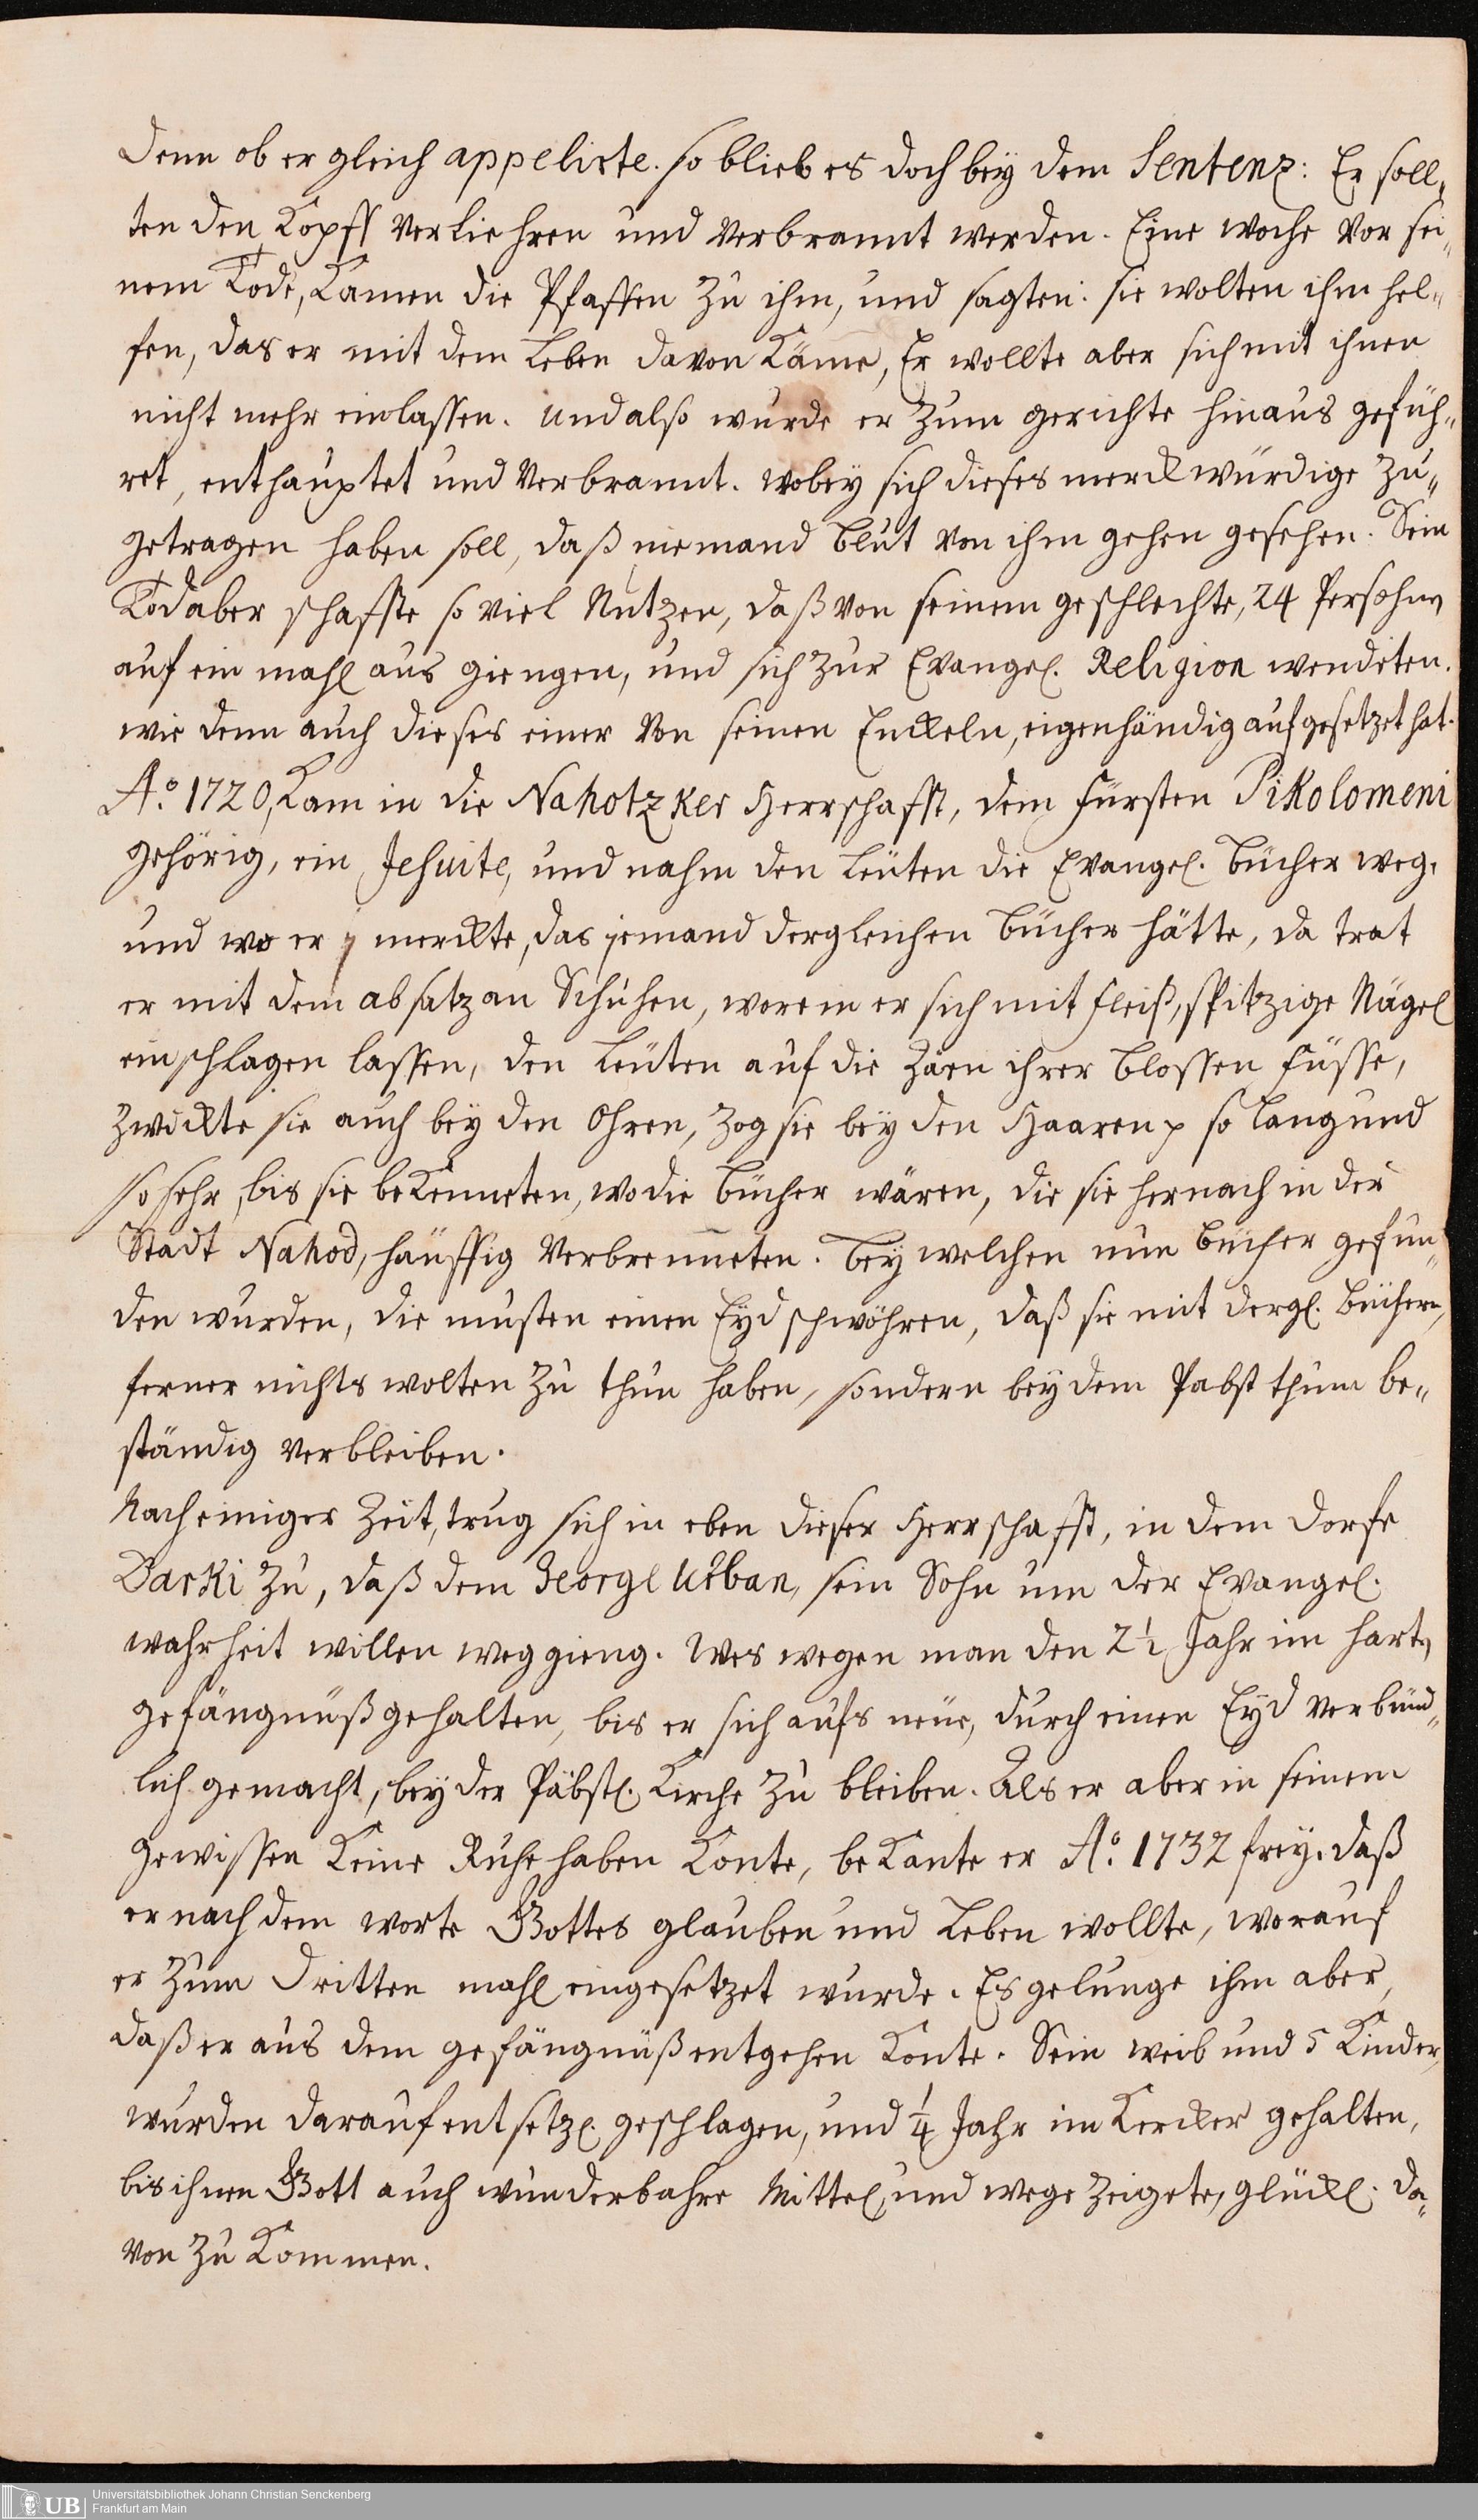 Denn ob er gleich appelirte. so blieb es doch bey dem Sentenz: Er soll„
ten den Kopff verliehren und verbrannt werden. Eine woche vor sei„
nem Tode, kamen die Pfaffen zu ihm, und sagten: sie wolten ihm hel„
fen, das er mit dem Leben davon käme, Er wollte aber sich mit ihnen
nicht mehr einlassen. und also wurde er zum gerichte hinaus gefüh„
ret, enthauptet und verbrannt. wobey sich dieses merckwürdige zu„
getragen haben soll, daß niemand blut von ihm gehen gesehen. Sein
Tod aber schaffte so viel Nutzen, daß von seinem geschlechte, 24 Persohnen
auf ein mahl aus giengen, und sich zur Evangel. Religion wendeten.
wie denn auch dieses einer von seinen Enckeln, eigenhändig aufgesetzet hat.
Aº. 1720, kam in die Nahotzker Herrschafft, dem fürsten Pikolomeni
gehörig, ein Jesuite, und nahm den Leuten die Evangel. bücher weg,
und wo er merckte, das jemand dergleichen bücher hätte, da trat
er mit dem absatz an Schuhen, worein er sich mit fleiß, spitzige Nägel
einschlagen lassen, den Leuten auf die zäen ihrer blossen füsse,
zwickte sie auch bey den Ohren, zog sie bey den Haaren p so lang und
so sehr, bis sie bekenneten, wo die bücher wären, die sie hernach in der
Stadt Nahod, häuffig verbrenneten. bey welchen nun bücher gefun„
den wurden, die musten einen Eyd schwöhren, daß sie mit dergl. büchern,
ferner nichts wolten zu thun haben, sondern bey dem Pabstthum be„
ständig verbleiben.
Nach einiger Zeit, trug sich in eben dieser Herrschafft, in dem dorfe
Darki zu, daß dem George Urban, sein Sohn um der Evangel.
wahrheit willen weggieng. Weswegen man den 2½ Jahr im harten
gefängnüß gehalten, bis er sich aufs neue, durch einen Eyd verbünd„
lich gemacht, bey der Päbstl. Kirche zu bleiben. Als er aber in seinem
gewissen keine Ruhe haben konte, bekante er Aº. 1732 frey. daß
er nach dem worte Gottes glauben und Leben wollte, worauf
er zum dritten mahl eingesetzet wurde. Es gelunge ihm aber,
daß er aus dem gefängnüß entgehen konte. Sein weib und 5 Kinder,
wurden darauf entsetzl. geschlagen, und ¼ Jahr im Kercker gehalten,
bis ihnen Gott auch wunderbahre Mittel, und wege zeigete, glückl. da„
von zu kommen.
UB
Universitätsbibliothek Johann Christian Senckenberg
Frankfurt am Main